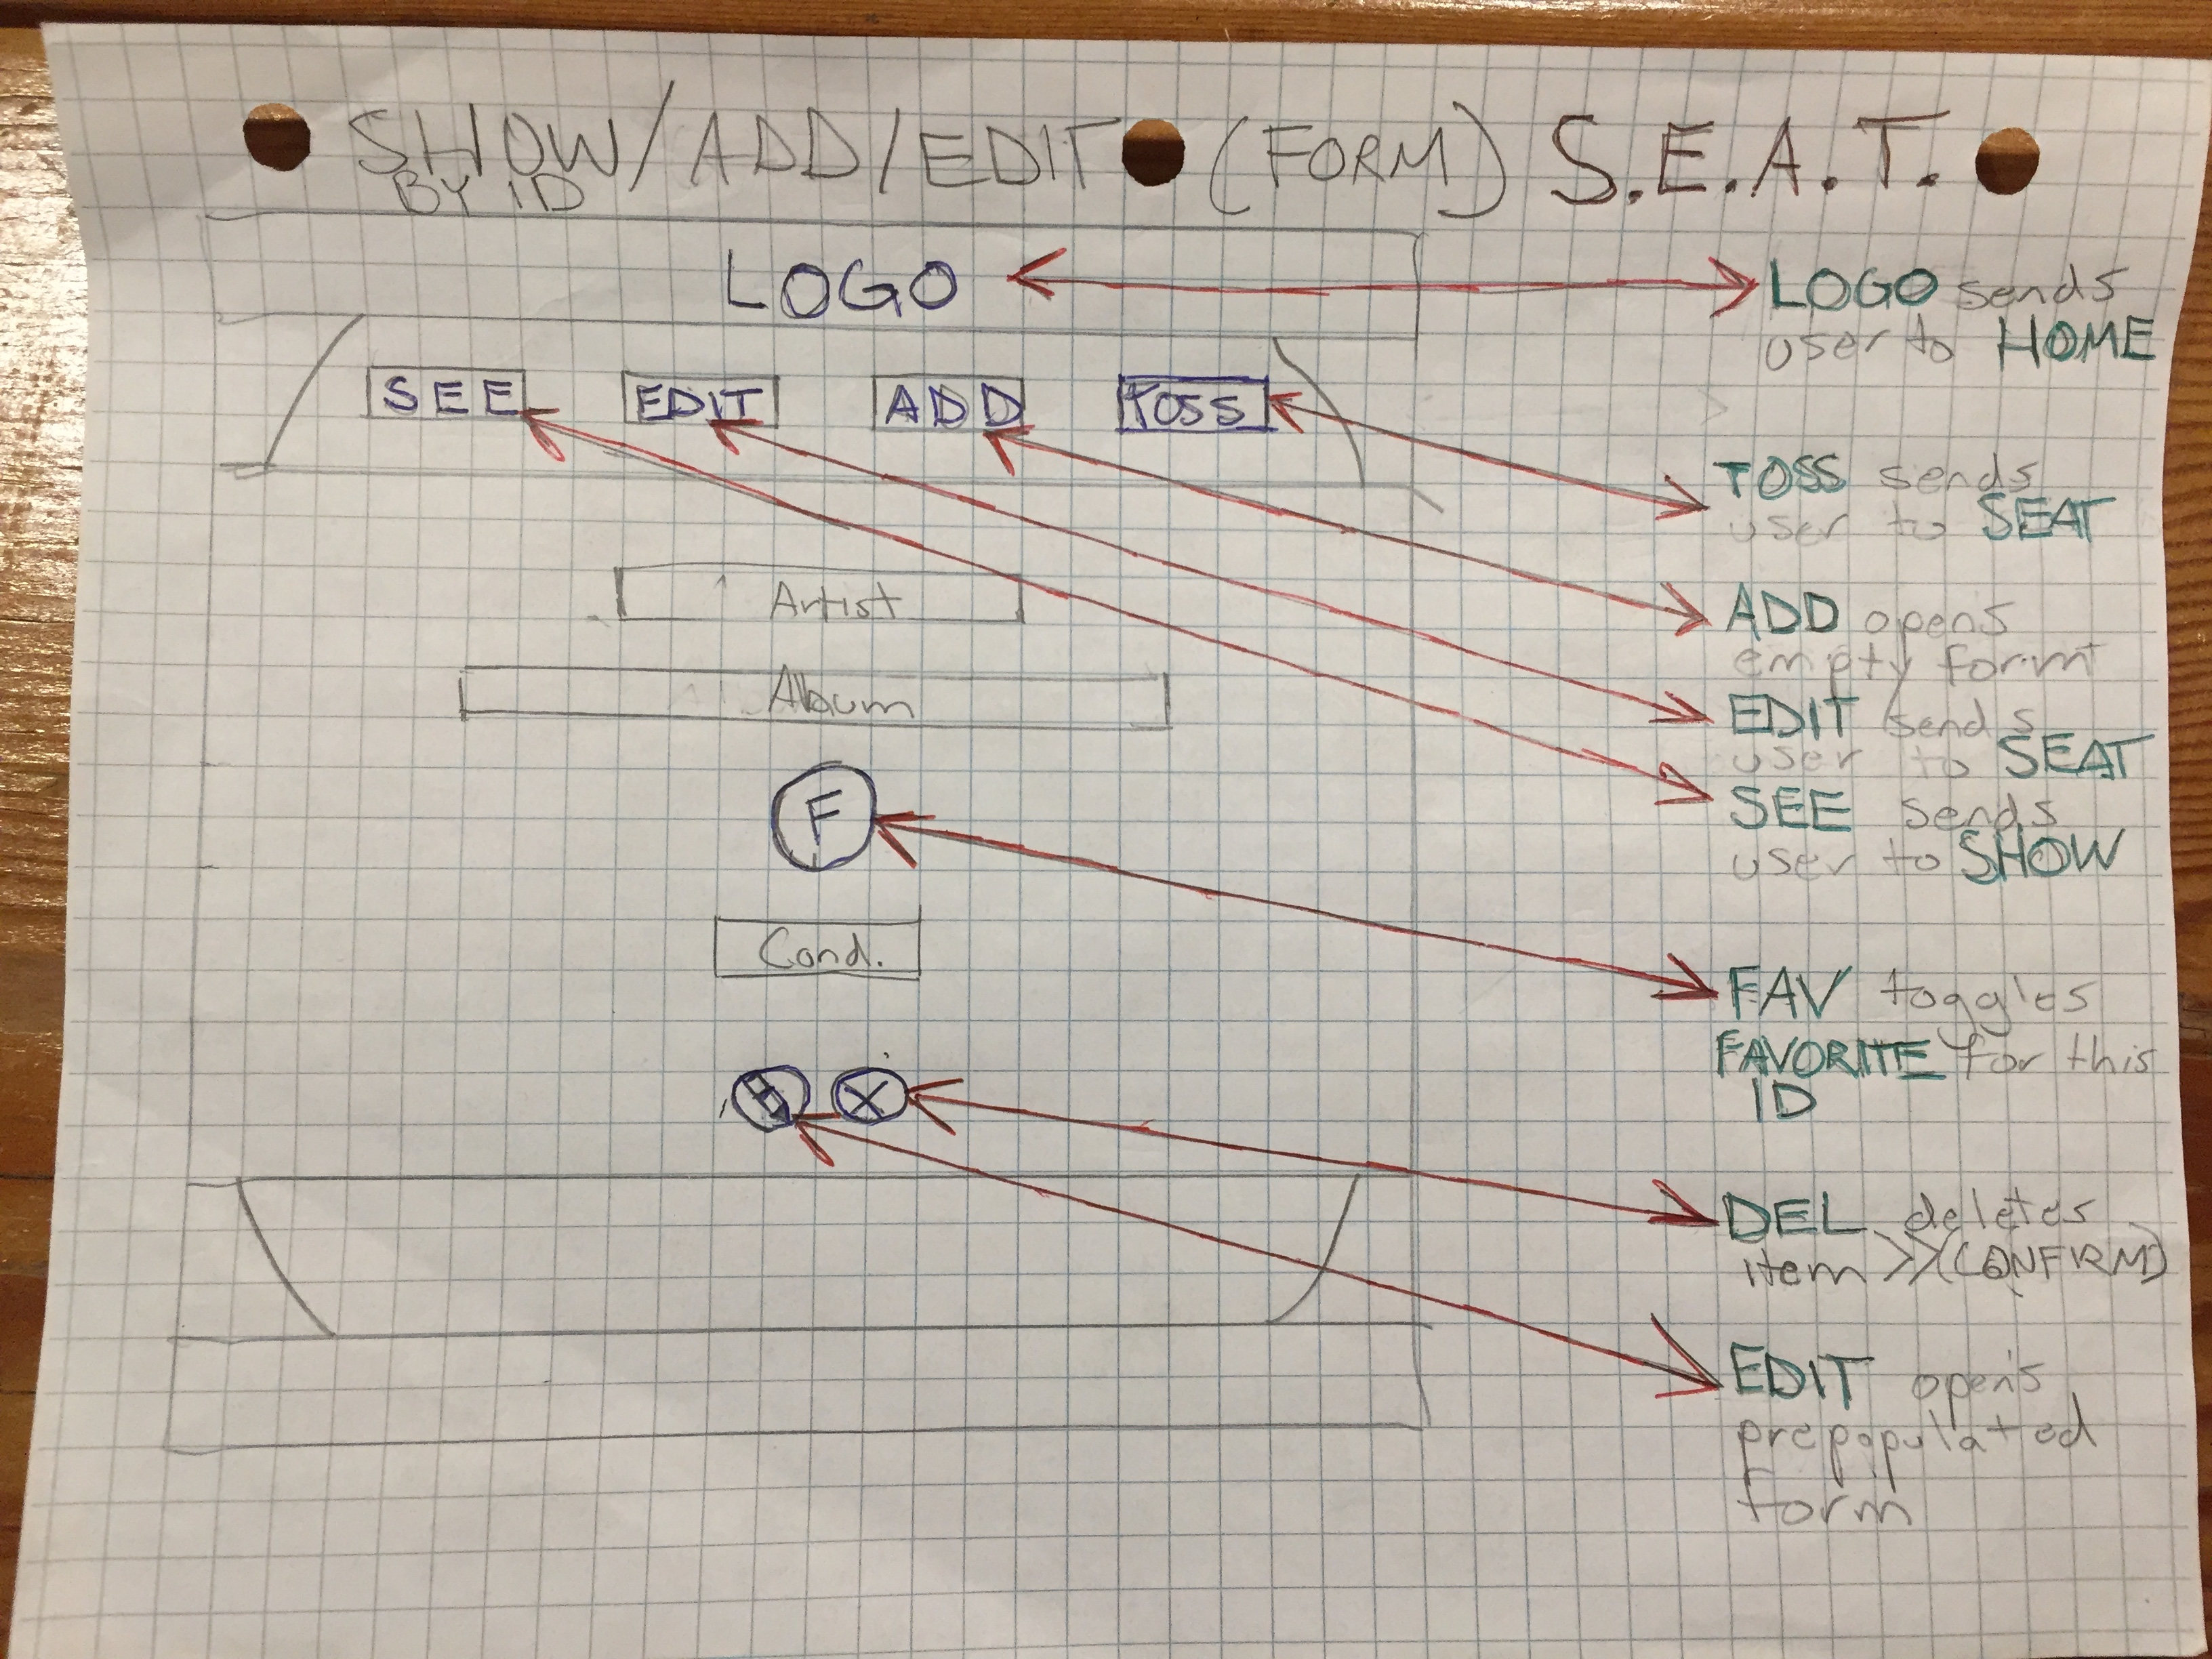 SHOW/ADD/EDIT (FORM) S.E.A.T.
BY ID
LOGO
SEE EDIT ADD TOSS
Artist
Album
F
Cond.
X
LOGO sends
user to HOME
TOSS sends
user to SEAT
ADD opens
empty form
EDIT sends
user to SEAT
SEE sends
user to SHOW
FAV toggles
FAVORITE for this
ID
DEL deletes
item >>(CONFIRM)
EDIT opens
prepopulated
form